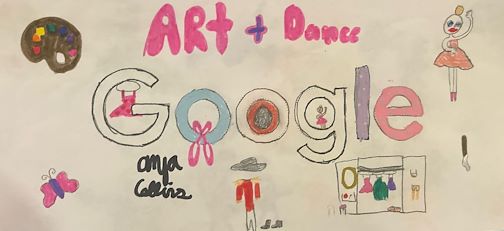 ART + Dance
Google
anya
Collins